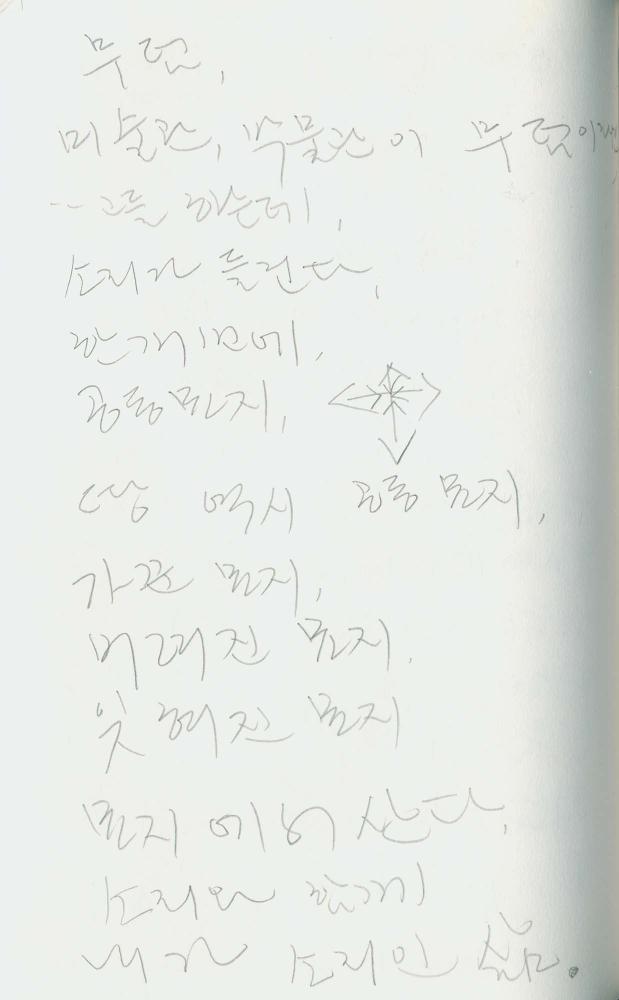 무덤,
미술관, 박물관이 무덤이라
고들 하는데,
소리가 들린다,
한 개인에,
공동묘지,
땅 역시 공동묘지,
가관 묘지,
버려진 묘지.
잊혀진 묘지
묘지에서 산다,
소리와 함께
내가 소리인 삶.